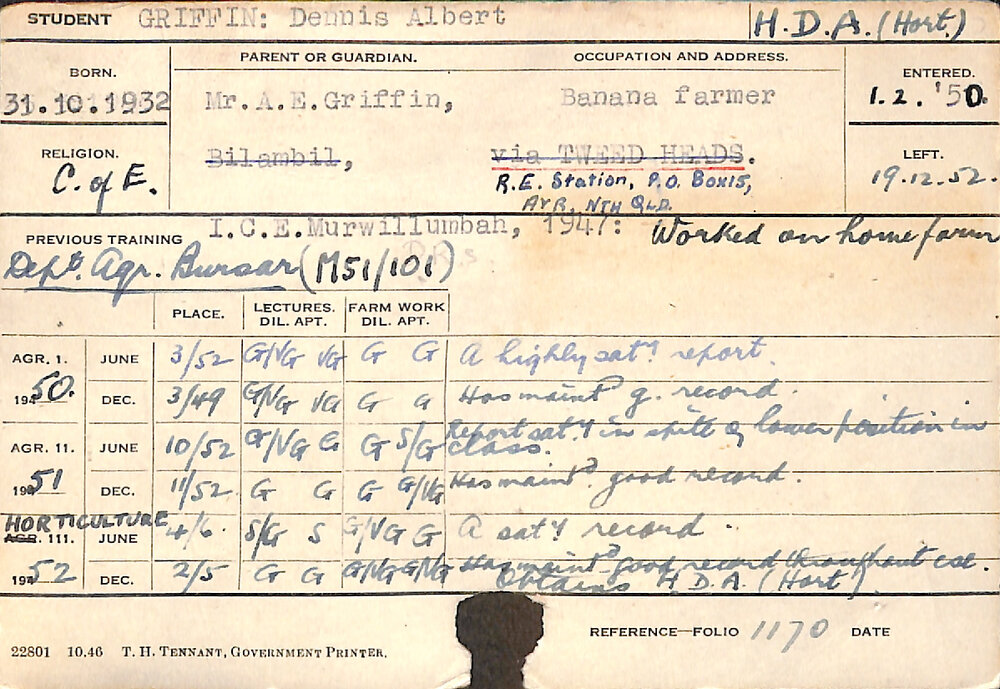 STUDENT GRIFFIN: Dennis Albert H.D.A. (Hort.)
BORN. PARENT OR GUARDIAN. OCCUPATION AND ADDRESS. ENTERED.
31.10.1932 Mr. A.E. Griffin, Banana farmer 1.2.'50.
RELIGION. Bilambil, via TWEED HEADS. LEFT.
C. of E. R.E. Station, P.O. Box 15, 19.12.52.
AYR, NTH QLD.
PREVIOUS TRAINING I.C.E. Murwillumbah, 1947: Worked on home farm
Dept. Agr. Bursar (M51/101)
PLACE. LECTURES. FARM WORK
DIL. APT. DIL. APT.
AGR. 1. JUNE 3/52 G/VG VG G G A highly saty report.
1950. DEC. 3/49 G/VG VG G G Has maintd g. record.
AGR. 11. JUNE 10/52 G/VG G G S/G Report saty in spite of lower position in class.
1951 DEC. 11/52 G G G G/VG Has maintd good record.
HORTICULTURE
AGR. 111. JUNE 4/6. S/G S G/VG G A saty record.
1952 DEC. 2/5 G G G/VG G/VG Has maintd good record throughout cse.
Obtains H.D.A. (Hort)
REFERENCE—FOLIO 1170 DATE
22801 10.46 T. H. TENNANT, GOVERNMENT PRINTER.